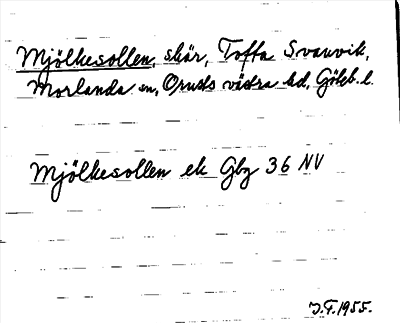 Mjölkesollen, skär, Tofta Svanvik,
Morlanda sn, Orusts västra hd, Göteb. l.
Mjölkesollen ek Gbg 36 NV
J.F. 1955.